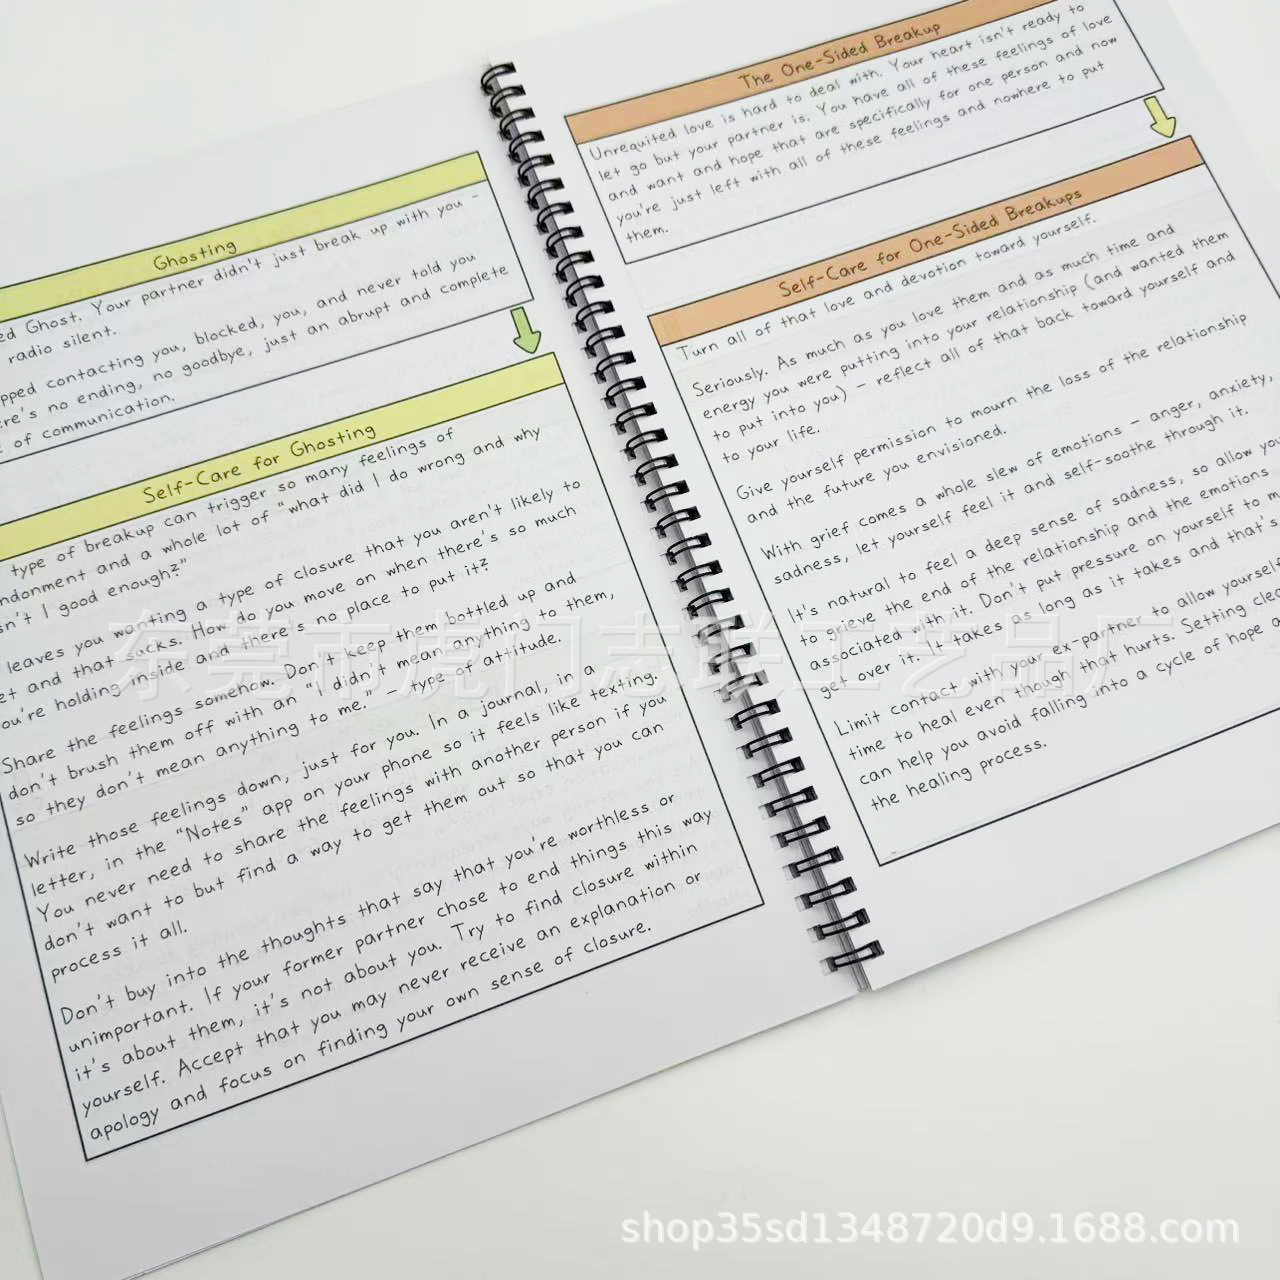 Ghosting
ed Ghost. Your partner didn't just break up with you -
radio silent.
pped contacting you, blocked, you, and never told you
ere's no ending, no goodbye, just an abrupt and complete
of communication.
Self-Care for Ghosting
type of breakup can trigger so many feelings of
ndonment and a whole lot of "what did I do wrong and why
sn't I good enough?"
leaves you wanting a type of closure that you aren't likely to
et and that sucks. How do you move on when there's so much
ou're holding inside and there's no place to put it?
Share the feelings somehow. Don't keep them bottled up and
don't brush them off with an "I didn't mean anything to them,
so they don't mean anything to me." - type of attitude.
Write those feelings down, just for you. In a journal, in a
letter, in the "Notes" app on your phone so it feels like texting.
You never need to share the feelings with another person if you
don't want to but find a way to get them out so that you can
process it all.
Don't buy into the thoughts that say that you're worthless or
unimportant. If your former partner chose to end things this way
it's about them, it's not about you. Try to find closure within
yourself. Accept that you may never receive an explanation or
apology and focus on finding your own sense of closure.
The One-Sided Breakup
Unrequited love is hard to deal with. Your heart isn't ready to
let go but your partner is. You have all of these feelings of love
and want and hope that are specifically for one person and now
you're just left with all of these feelings and nowhere to put
them.
Self-Care for One-Sided Breakups
Turn all of that love and devotion toward yourself.
Seriously. As much as you love them and as much time and
energy you were putting into your relationship (and wanted them
to put into you) - reflect all of that back toward yourself and
to your life.
Give yourself permission to mourn the loss of the relationship
and the future you envisioned.
With grief comes a whole slew of emotions - anger, anxiety,
sadness, let yourself feel it and self-soothe through it.
It's natural to feel a deep sense of sadness, so allow you
to grieve the end of the relationship and the emotions
associated with it. Don't put pressure on yourself to m
get over it. It takes as long as it takes and that's
Limit contact with your ex-partner to allow yourself
time to heal even though that hurts. Setting clea
can help you avoid falling into a cycle of hope a
the healing process.
东莞市虎门志联工艺品厂
shop35sd1348720d9.1688.com